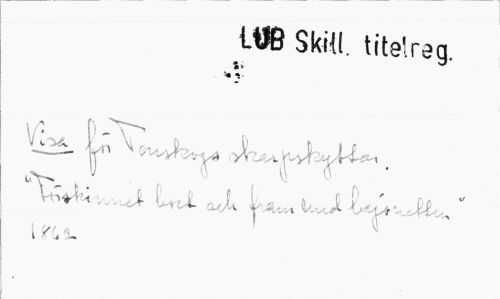 LUB Skill. titelreg.
Visa för Tonskogs skarpskyttar.
"Förskinnet bort och fram med bajonetten"
1862